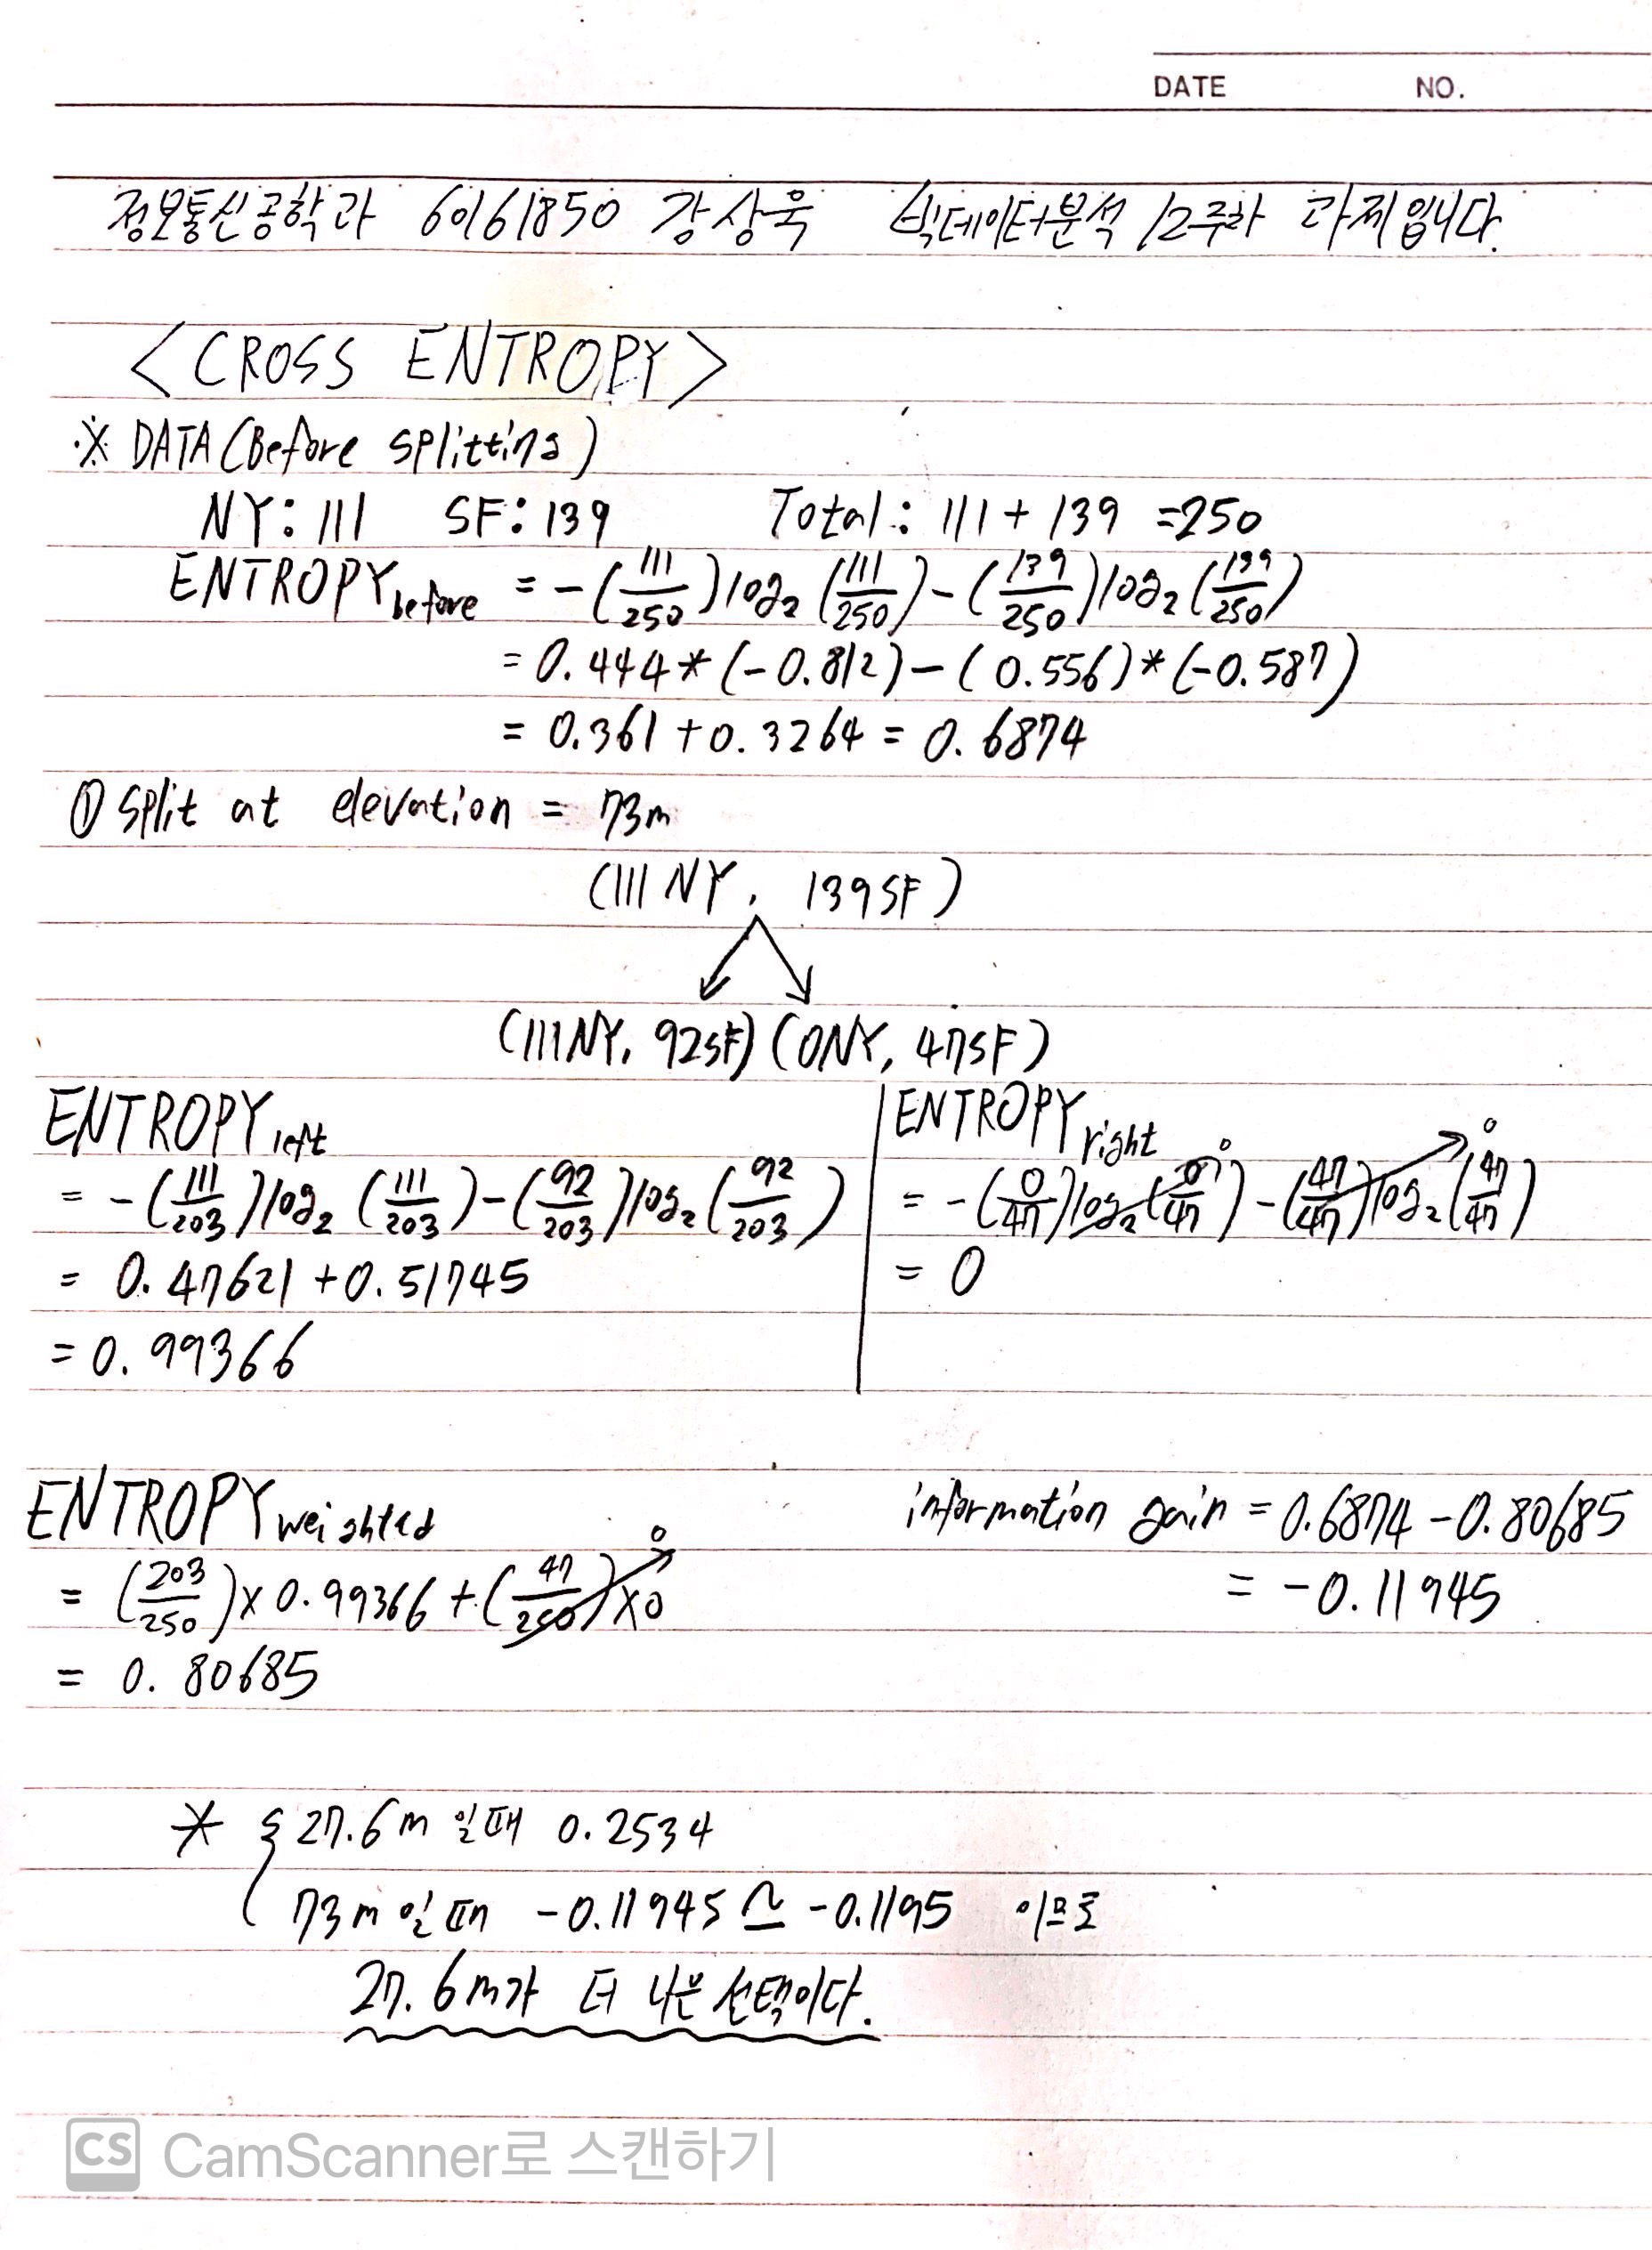 DATE NO.
정보통신공학과 60161850 강상욱 빅데이터분석 12주차 과제입니다.
<CROSS ENTROPY>
※ DATA(Before splitting)
NY: 111 SF: 139 Total: 111 + 139 = 250
ENTROPY before = -(111/250)log₂(111/250) - (139/250)log₂(139/250)
= 0.444*(-0.812) - (0.556)*(-0.587)
= 0.361 + 0.3264 = 0.6874
① split at elevation = 73m
(111NY, 139SF)
(111NY, 92SF) (0NY, 47SF)
ENTROPY left
= -(111/203)log₂(111/203) - (92/203)log₂(92/203)
= 0.47621 + 0.51745
= 0.99366
ENTROPY right
= -(0/47)log₂(0/47) 0 - (47/47)log₂(47/47) 0
= 0
ENTROPY weighted
= (203/250) × 0.99366 + (47/250) × 0 0
= 0.80685
information gain = 0.6874 - 0.80685
= -0.11945
* { 27.6m 일때 0.2534
73m 일때 -0.11945 ≃ -0.1195 이므로
27.6m가 더 나은 선택이다.
CS CamScanner로 스캔하기